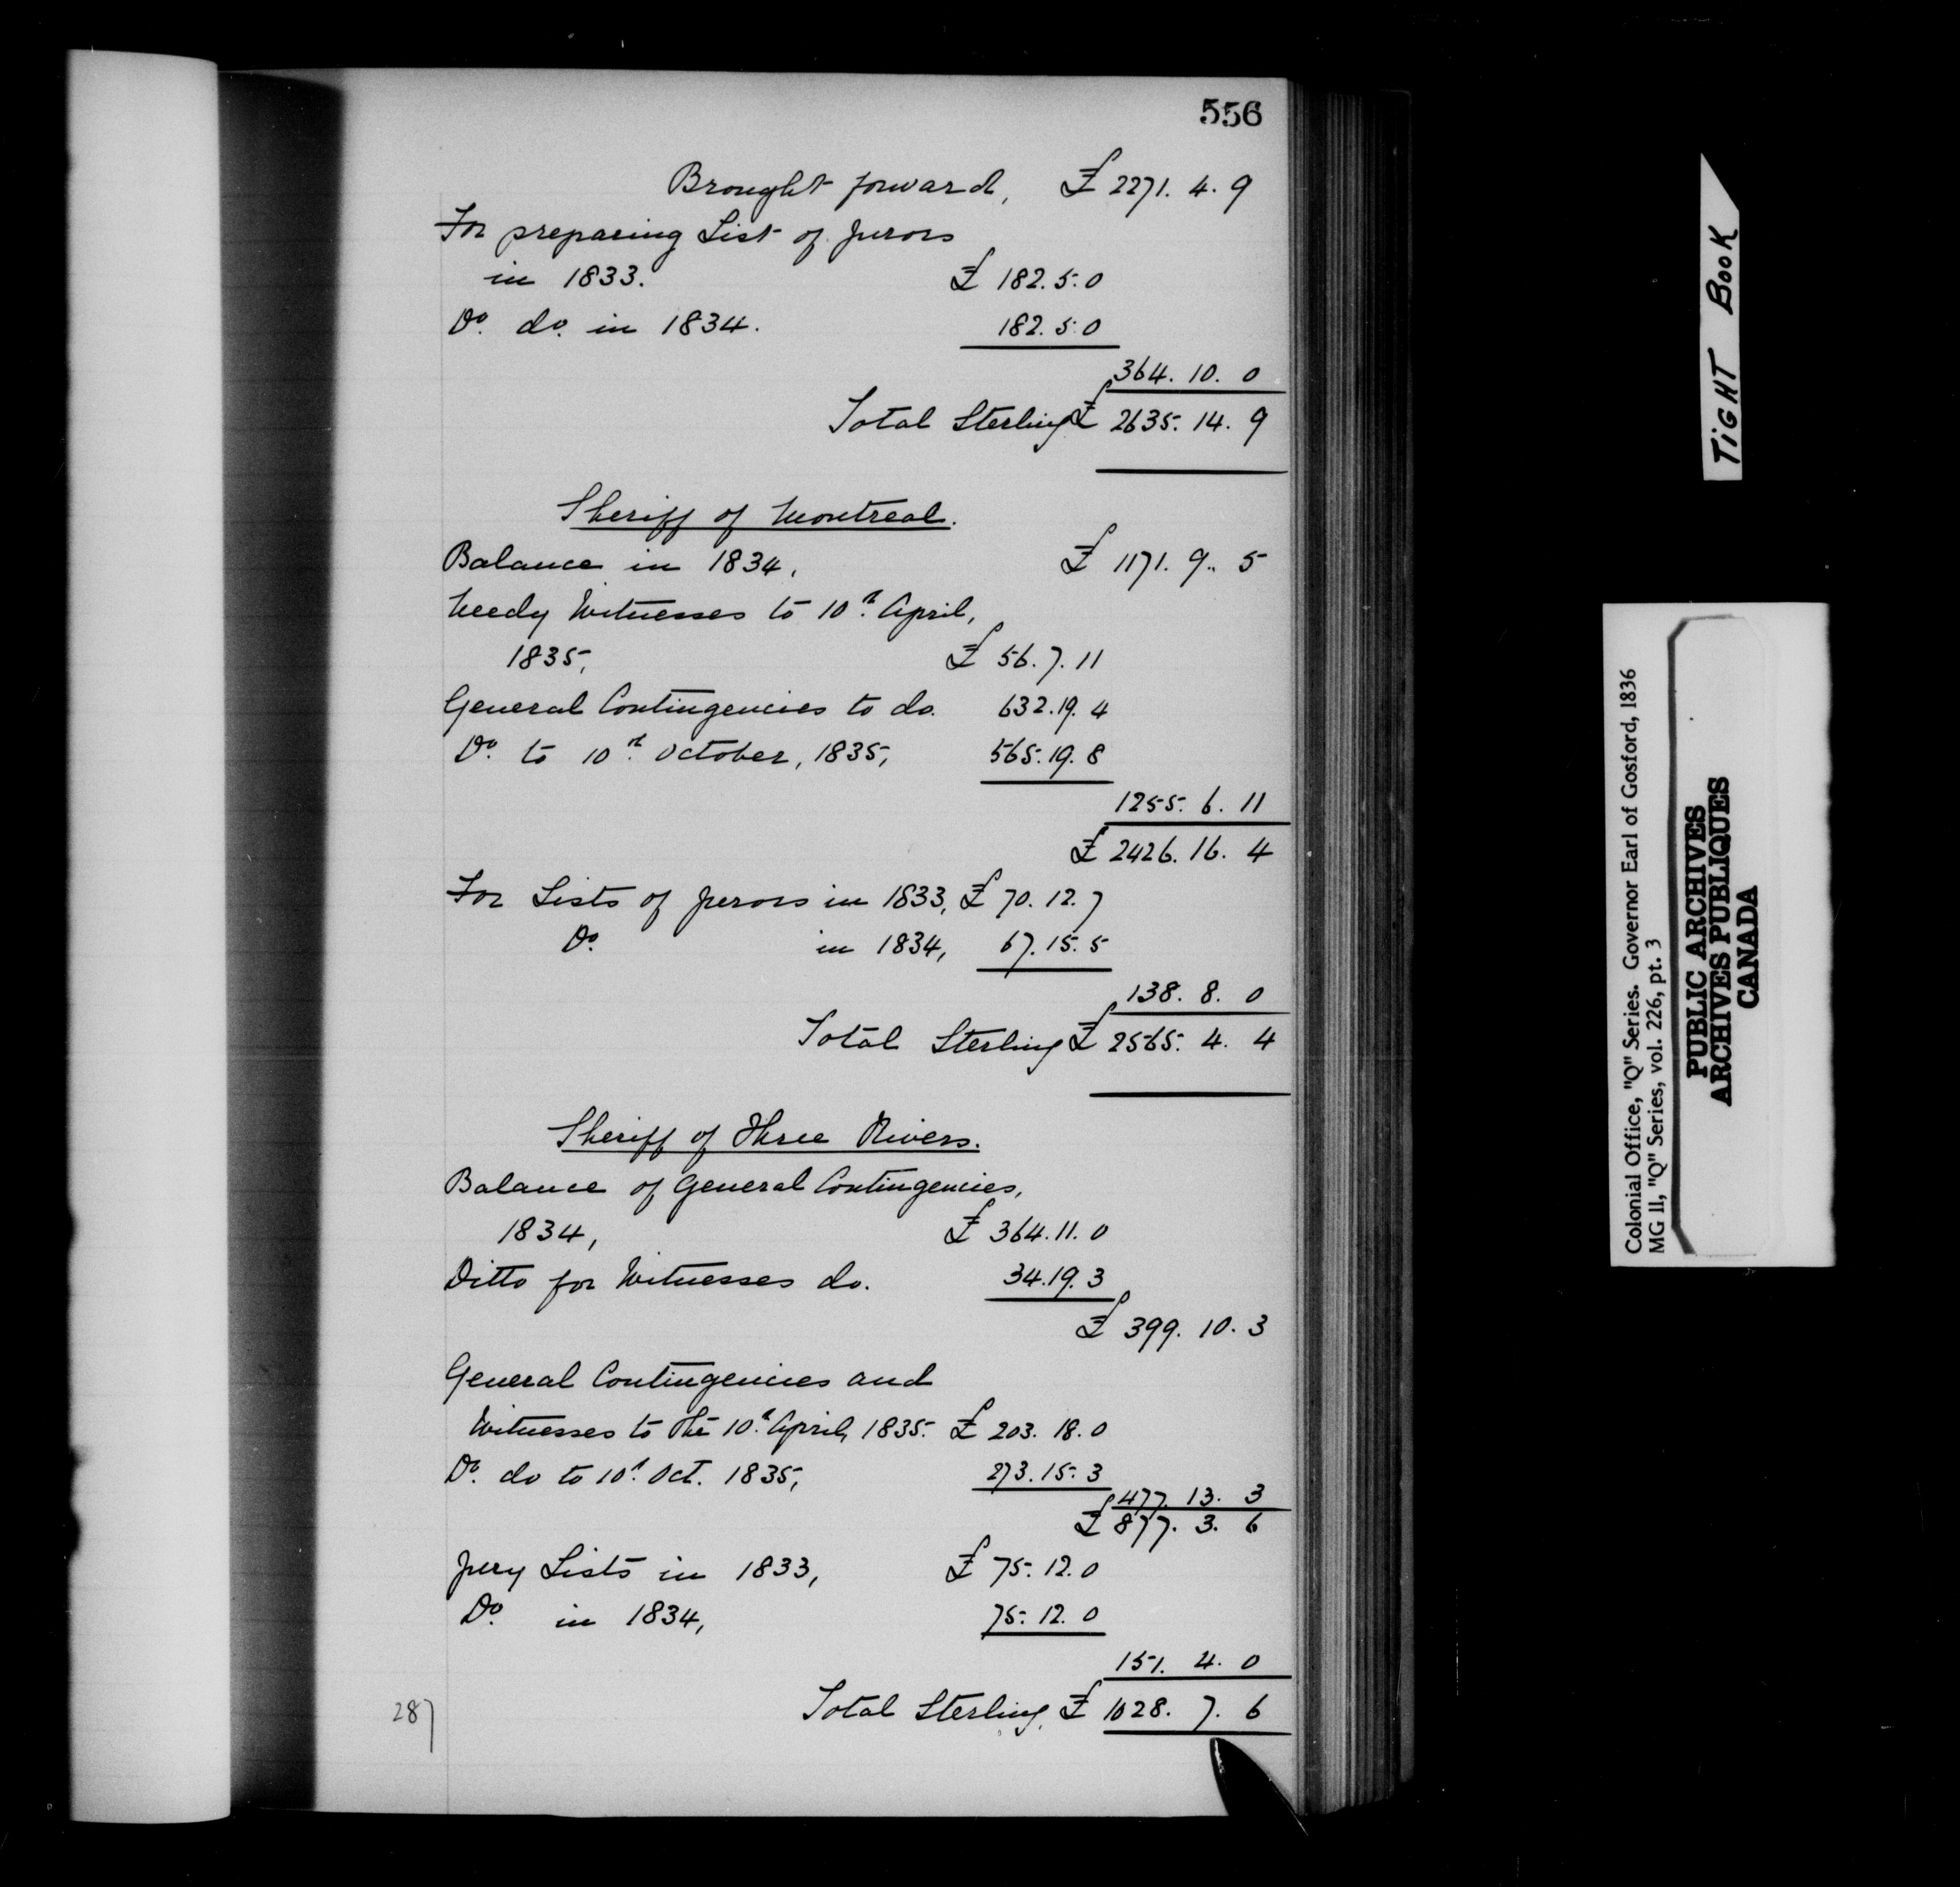 556
Brought forward, £ 2271. 4. 9
For preparing List of Jurors
in 1833. £ 182. 5. 0
Do. do. in 1834. 182. 5. 0
364. 10. 0
Total Sterling £ 2635. 14. 9
Sheriff of Montreal.
Balance in 1834, £ 1171. 9. 5
Needy Witnesses to 10th April,
1835, £ 56. 7. 11
General Contingencies to do. 632. 19. 4
Do. to 10th October, 1835, 565. 19. 8
1255. 6. 11
£ 2426. 16. 4
For Lists of Jurors in 1833, £ 70. 12. 7
Do. in 1834, 67. 15. 5
138. 8. 0
Total Sterling £ 2565. 4. 4
Sheriff of Three Rivers.
Balance of General Contingencies,
1834, £ 364. 11. 0
Ditto for Witnesses do. 34. 19. 3
£ 399. 10. 3
General Contingencies and
Witnesses to the 10th April, 1835. £ 203. 18. 0
Do. do to 10th Oct. 1835, 273. 15. 3
477. 13. 3
£ 877. 3. 6
Jury Lists in 1833, £ 75. 12. 0
Do. in 1834, 75. 12. 0
151. 4. 0
Total Sterling, £ 1028. 7. 6
287
TIGHT BOOK
Colonial Office, "Q" Series. Governor Earl of Gosford, 1836
MG 11, "Q" Series, vol. 226, pt. 3
PUBLIC ARCHIVES
ARCHIVES PUBLIQUES
CANADA